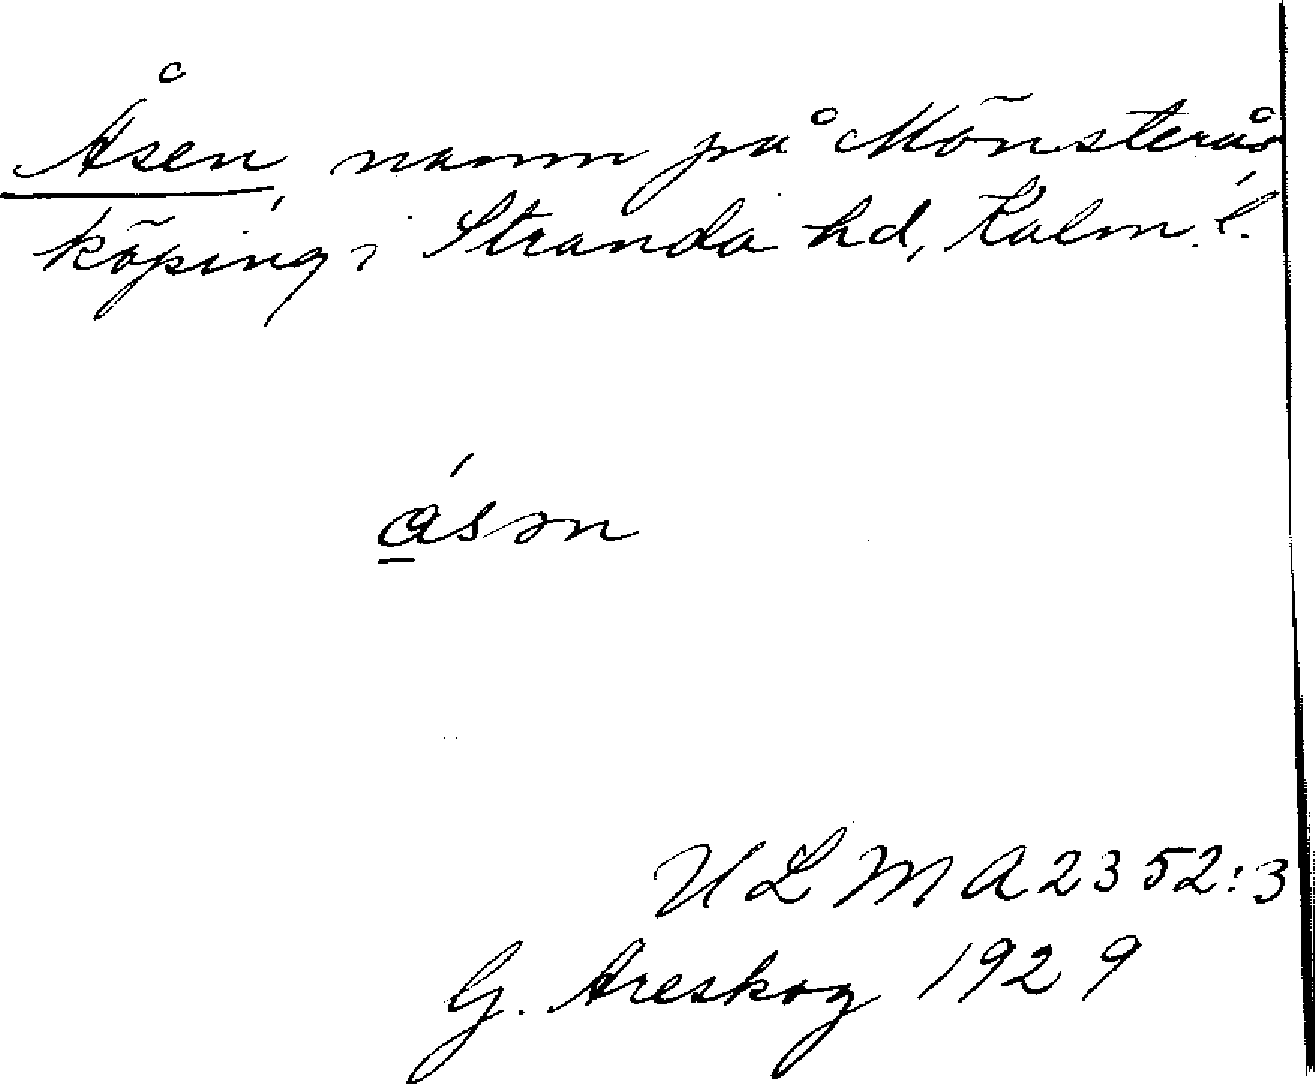 Åsen, namn på Mönsterås
köping, Stranda hd, Kalm. l.
á̲sən
ULMA 2352:3
G. Areskog 1929